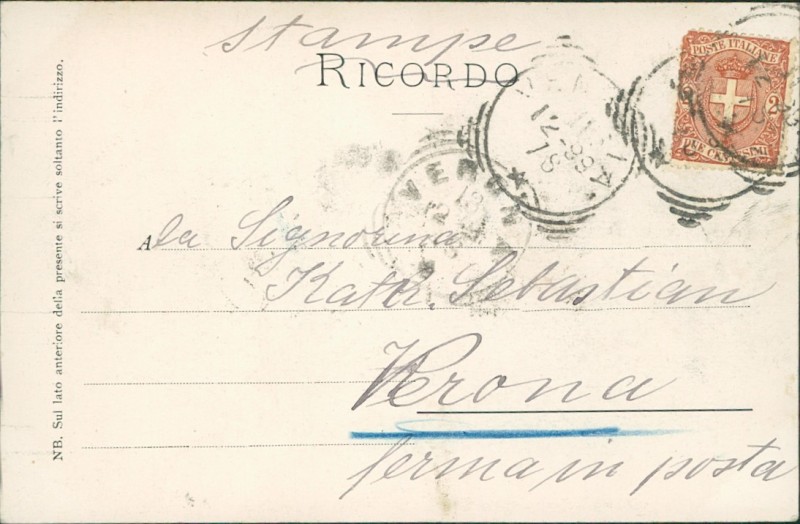 stampe
RICORDO
POSTE ITALIANE
2 2
DUE CENTESIMI
VENEZIA
VERONA
A la Signorina
Sebastian
Verona
ferma in posta
NB. Sul lato anteriore della presente si scrive soltanto l'indirizzo.